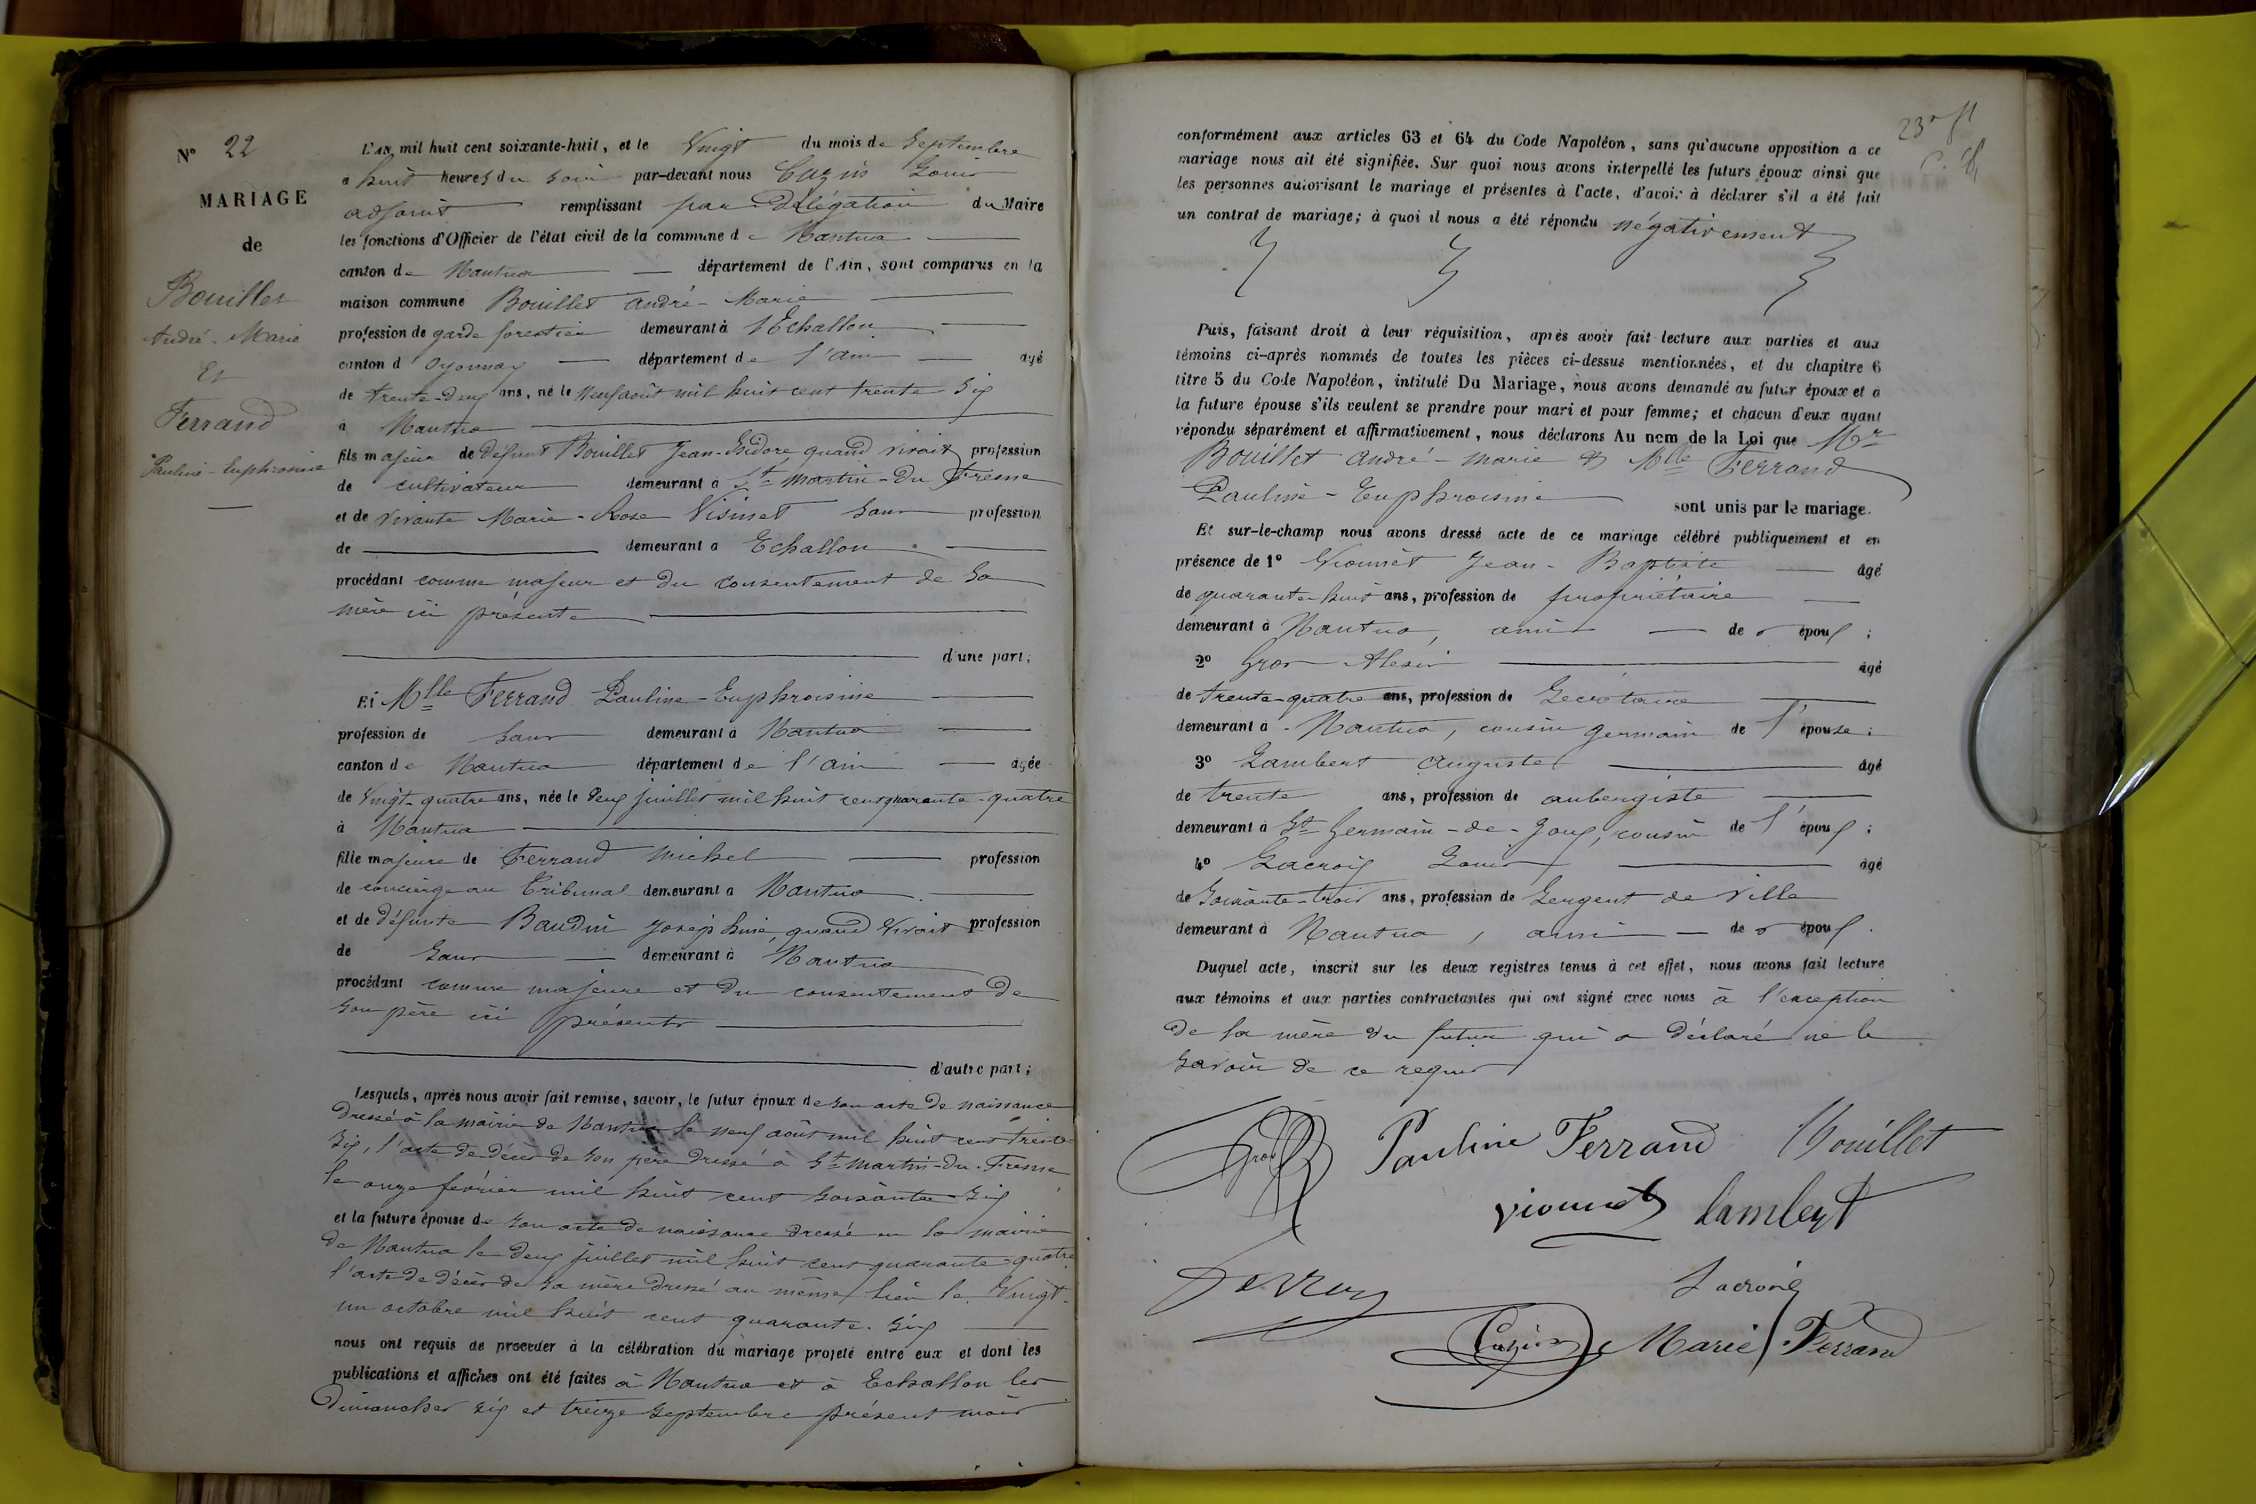 N° 22
MARIAGE
de
Bouillet
André-Marie
Et
Ferrand
Pauline-Euphrosine
L'an mil huit cent soixante-huit, et le Vingt du mois de Septembre
à huit heures du soir par-devant nous Cuzin Louis
adjoint remplissant par délégation du Maire
les fonctions d'Officier de l'état civil de la commune de Nantua
canton de Nantua département de l'Ain, sont comparus en la
maison commune Bouillet André-Marie
profession de garde forestier demeurant à Echallon
canton d'Oyonnax département de l'ain âgé
de trente-deux ans, né le neuf août mil huit cent trente six
à Nantua
fils majeur de défunt Bouillet Jean-Isidore quand vivait profession
de cultivateur demeurant à St Martin-du-Fresne
et de vivante Marie-Rose Visinet sans profession
de demeurant à Echallon
procédant comme majeur et du consentement de sa
mère ici présente
d'une part;
Et Mlle Ferrand Pauline-Euphroisine
profession de sans demeurant à Nantua
canton de Nantua département de l'ain âgée
de vingt-quatre ans, née le deux juillet mil huit cent quarante-quatre
à Nantua
fille majeure de Ferrand Michel profession
de concierge au Tribunal demeurant à Nantua
et de défunte Baudin Joséphine quand vivait profession
de sans demeurant à Nantua
procédant comme majeure et du consentement de
son père ici présent
d'autre part;
Lesquels, après nous avoir fait remise, savoir, le futur époux de son acte de naissance
dressé à la mairie de Nantua le neuf août mil huit cent trente
six, l'acte de décès de son père dressé à St Martin-du-Fresne
le onze février mil huit cent soixante six
et la future épouse de son acte de naissance dressé en la mairie
de Nantua le deux juillet mil huit cent quarante-quatre
l'acte de décès de sa mère dressé au même lieu le vingt-
un octobre mil huit cent quarante-six
nous ont requis de procéder à la célébration du mariage projeté entre eux et dont les
publications et affiches ont été faites à Nantua et à Echallon les
dimanches six et treize septembre présent mois
conformément aux articles 63 et 64 du Code Napoléon, sans qu'aucune opposition à ce
mariage nous ait été signifiée. Sur quoi nous avons interpellé les futurs époux ainsi que
les personnes autorisant le mariage et présentes à l'acte, d'avoir à déclarer s'il a été fait
un contrat de mariage; à quoi il nous a été répondu négativement
Puis, faisant droit à leur réquisition, après avoir fait lecture aux parties et aux
témoins ci-après nommés de toutes les pièces ci-dessus mentionnées, et du chapitre 6
titre 5 du Code Napoléon, intitulé Du Mariage, nous avons demandé au futur époux et à
la future épouse s'ils veulent se prendre pour mari et pour femme; et chacun d'eux ayant
répondu séparément et affirmativement, nous déclarons Au nom de la Loi que Mr
Bouillet André-Marie & Mlle Ferrand
Pauline-Euphroisine sont unis par le mariage.
Et sur-le-champ nous avons dressé acte de ce mariage célébré publiquement et en
présence de 1° Viounet Jean-Baptiste âgé
de quarante-huit ans, profession de propriétaire
demeurant à Nantua, ami des époux;
2° Gros Alexis âgé
de trente-quatre ans, profession de Secrétaire
demeurant à Nantua, cousin germain de l'épouse;
3° Lambert Auguste âgé
de trente ans, profession de aubergiste
demeurant à St Germain-de-Joux, cousin de l'époux;
4° Lacroix Louis âgé
de soixante-trois ans, profession de Sergent de ville
demeurant à Nantua, ami des époux.
Duquel acte, inscrit sur les deux registres tenus à cet effet, nous avons fait lecture
aux témoins et aux parties contractantes qui ont signé avec nous à l'exception
de la mère du futur qui a déclaré ne le
savoir de ce requis
Gros Pauline Ferrand Bouillet
viounet Lambert
Lacroix
Cuzin Marie Ferrand